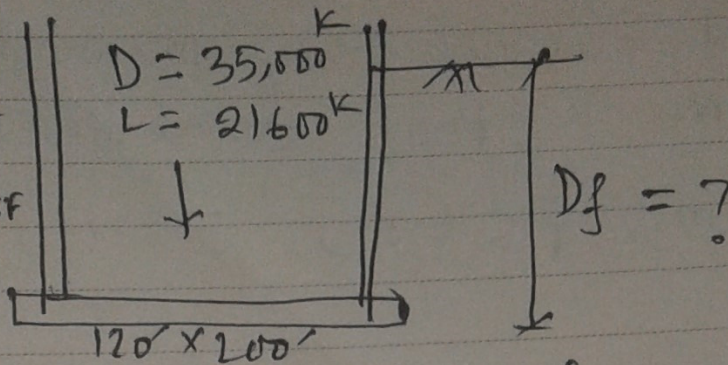 D = 35,000ᴷ
L = 21600ᴷ
F
Df = ?
120′ × 200′